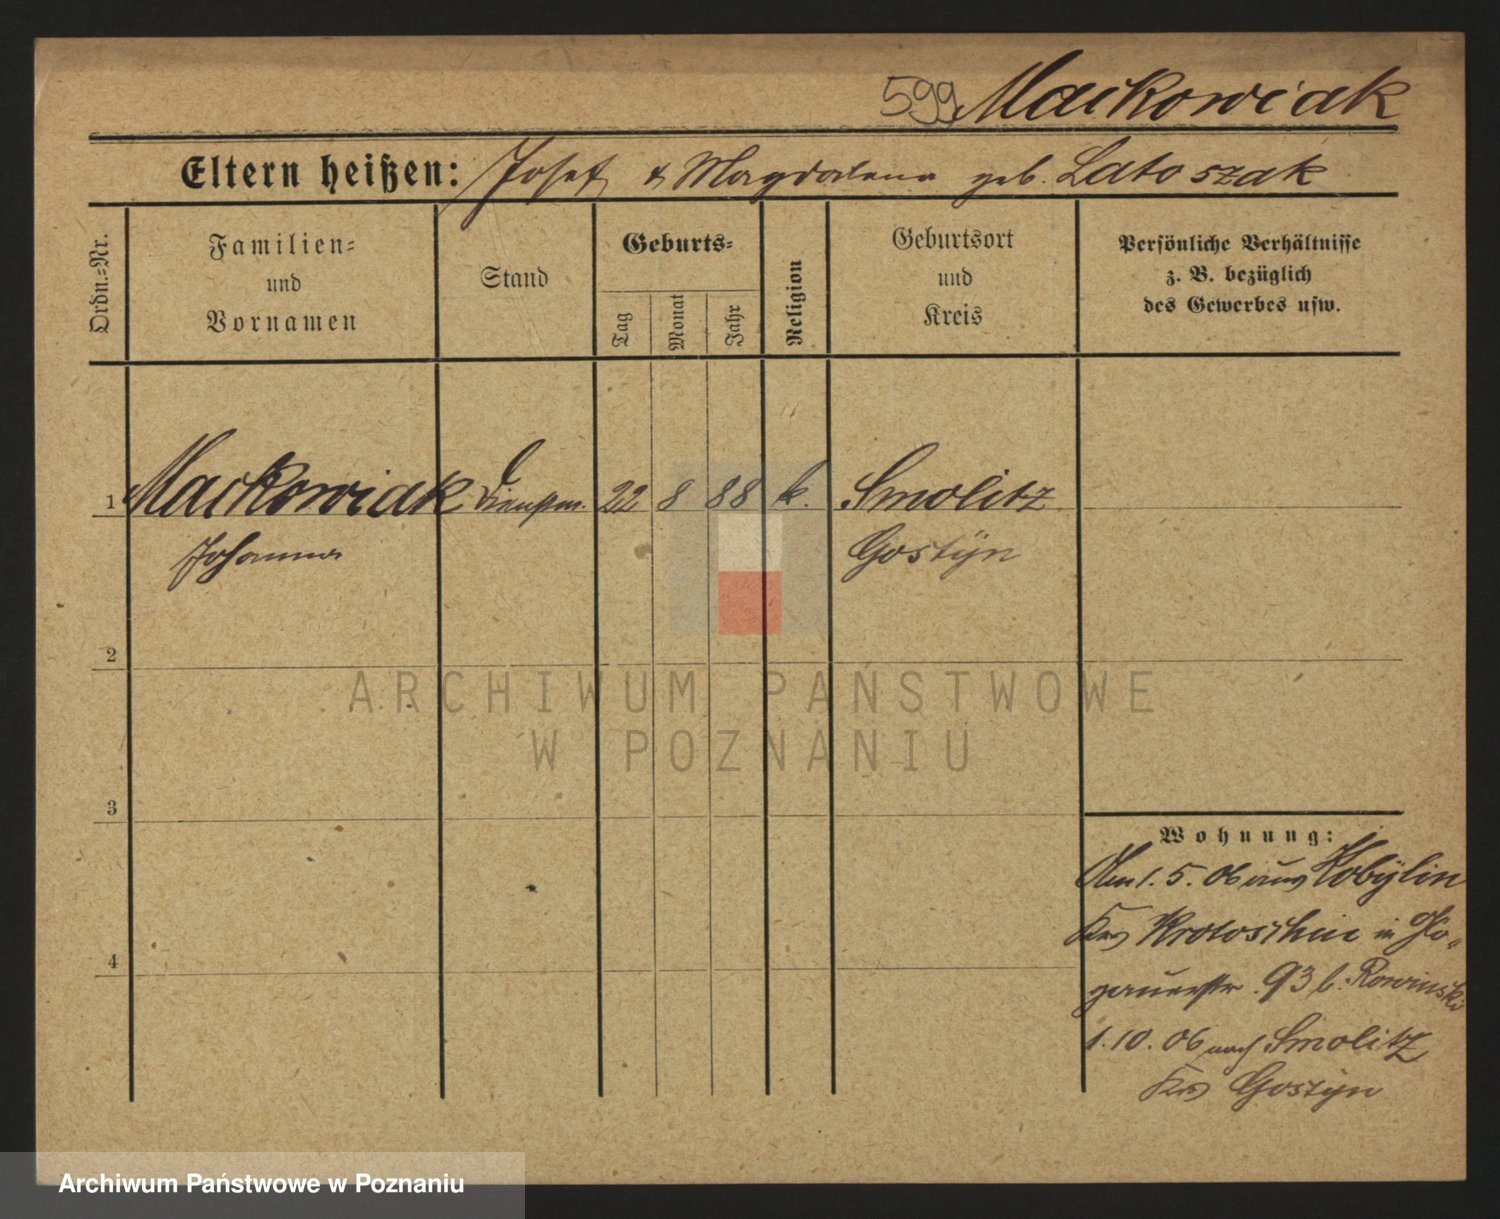 599 Maćkowiak
Eltern heißen: Josef & Magdalena geb. Latoszak
Ordn.=Nr.
Familien=
und
Vornamen
Stand
Geburts=
Tag
Monat
Jahr
Religion
Geburtsort
und
Kreis
Persönliche Verhältnisse
z. B. bezüglich
des Gewerbes usw.
1 Maćkowiak Dienstm. 22 8 88 k. Smolitz
Johanna Gostÿn
2
3
4
Wohnung:
Am 1. 5. 06 aus Kobÿlin
Krs Krotoschin in Glo-
gauerstr. 93 b. Rowinski
1. 10. 06 nach Smolitz
Krs Gostÿn
ARCHIWUM PAŃSTWOWE
W POZNANIU
Archiwum Państwowe w Poznaniu